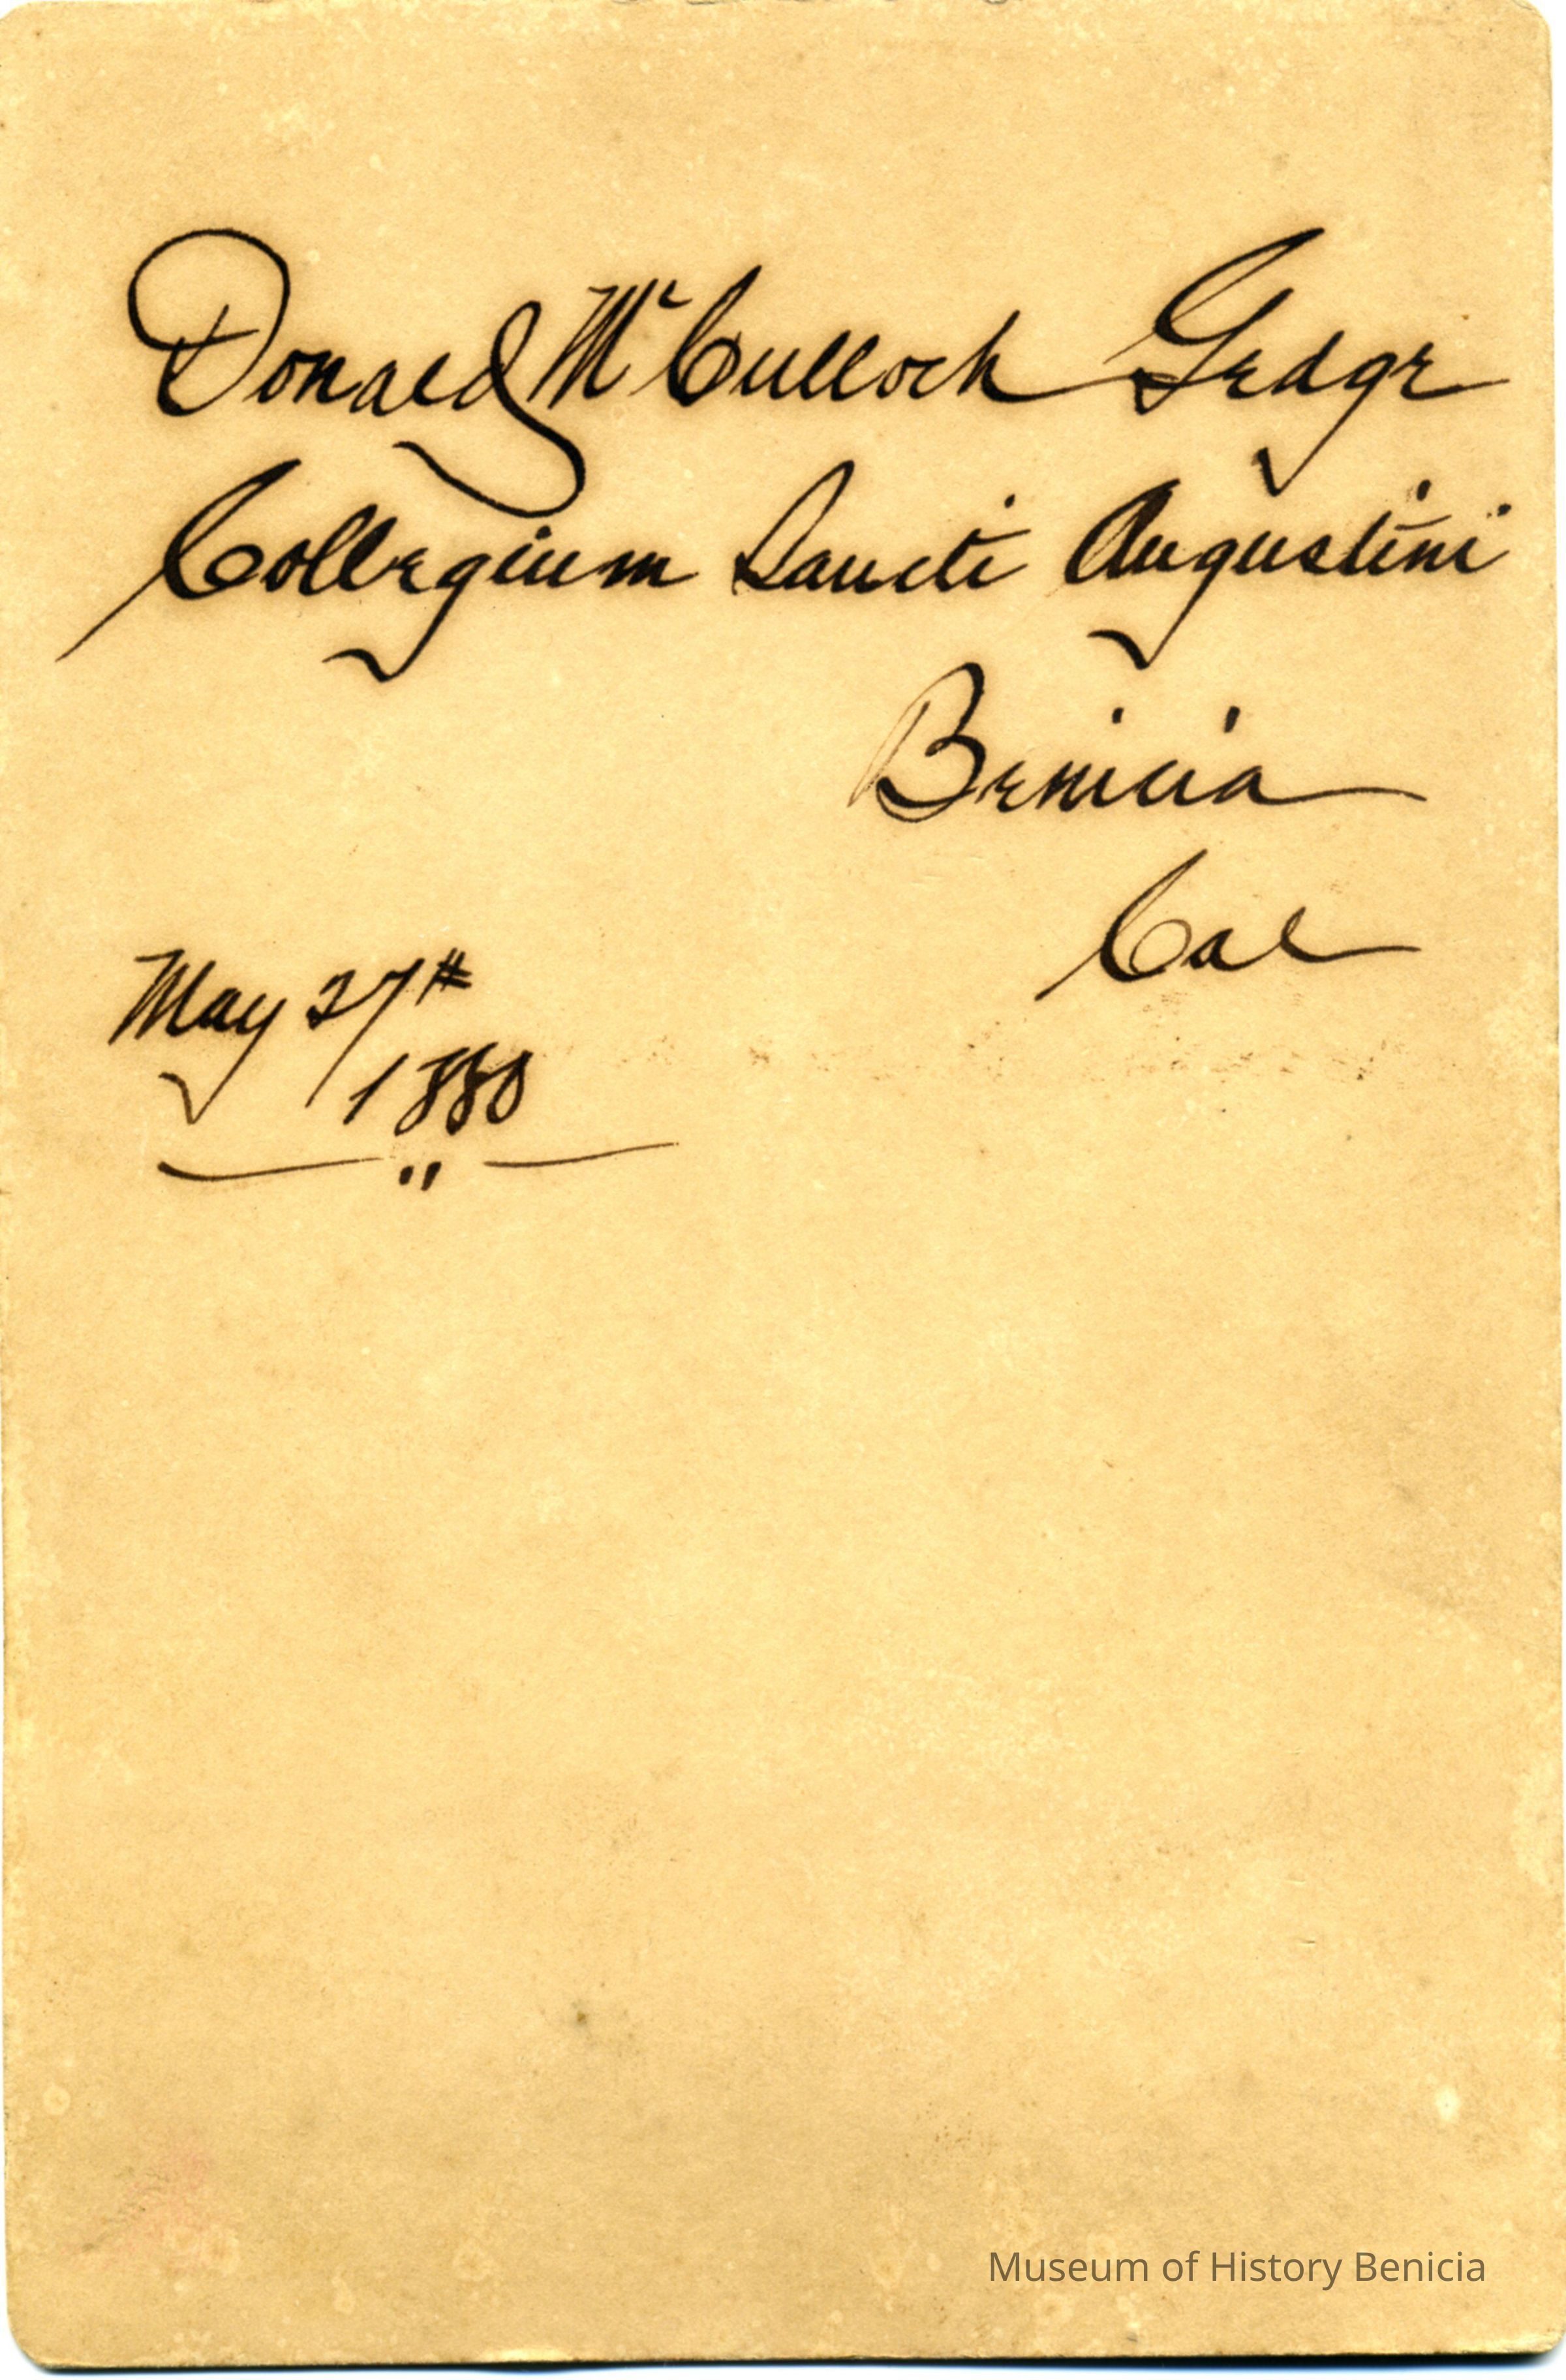 Donald McCulloch Gedge
Collegium Sancti Augustini
Benicia
Cal
May 27th
1880
"
Museum of History Benicia